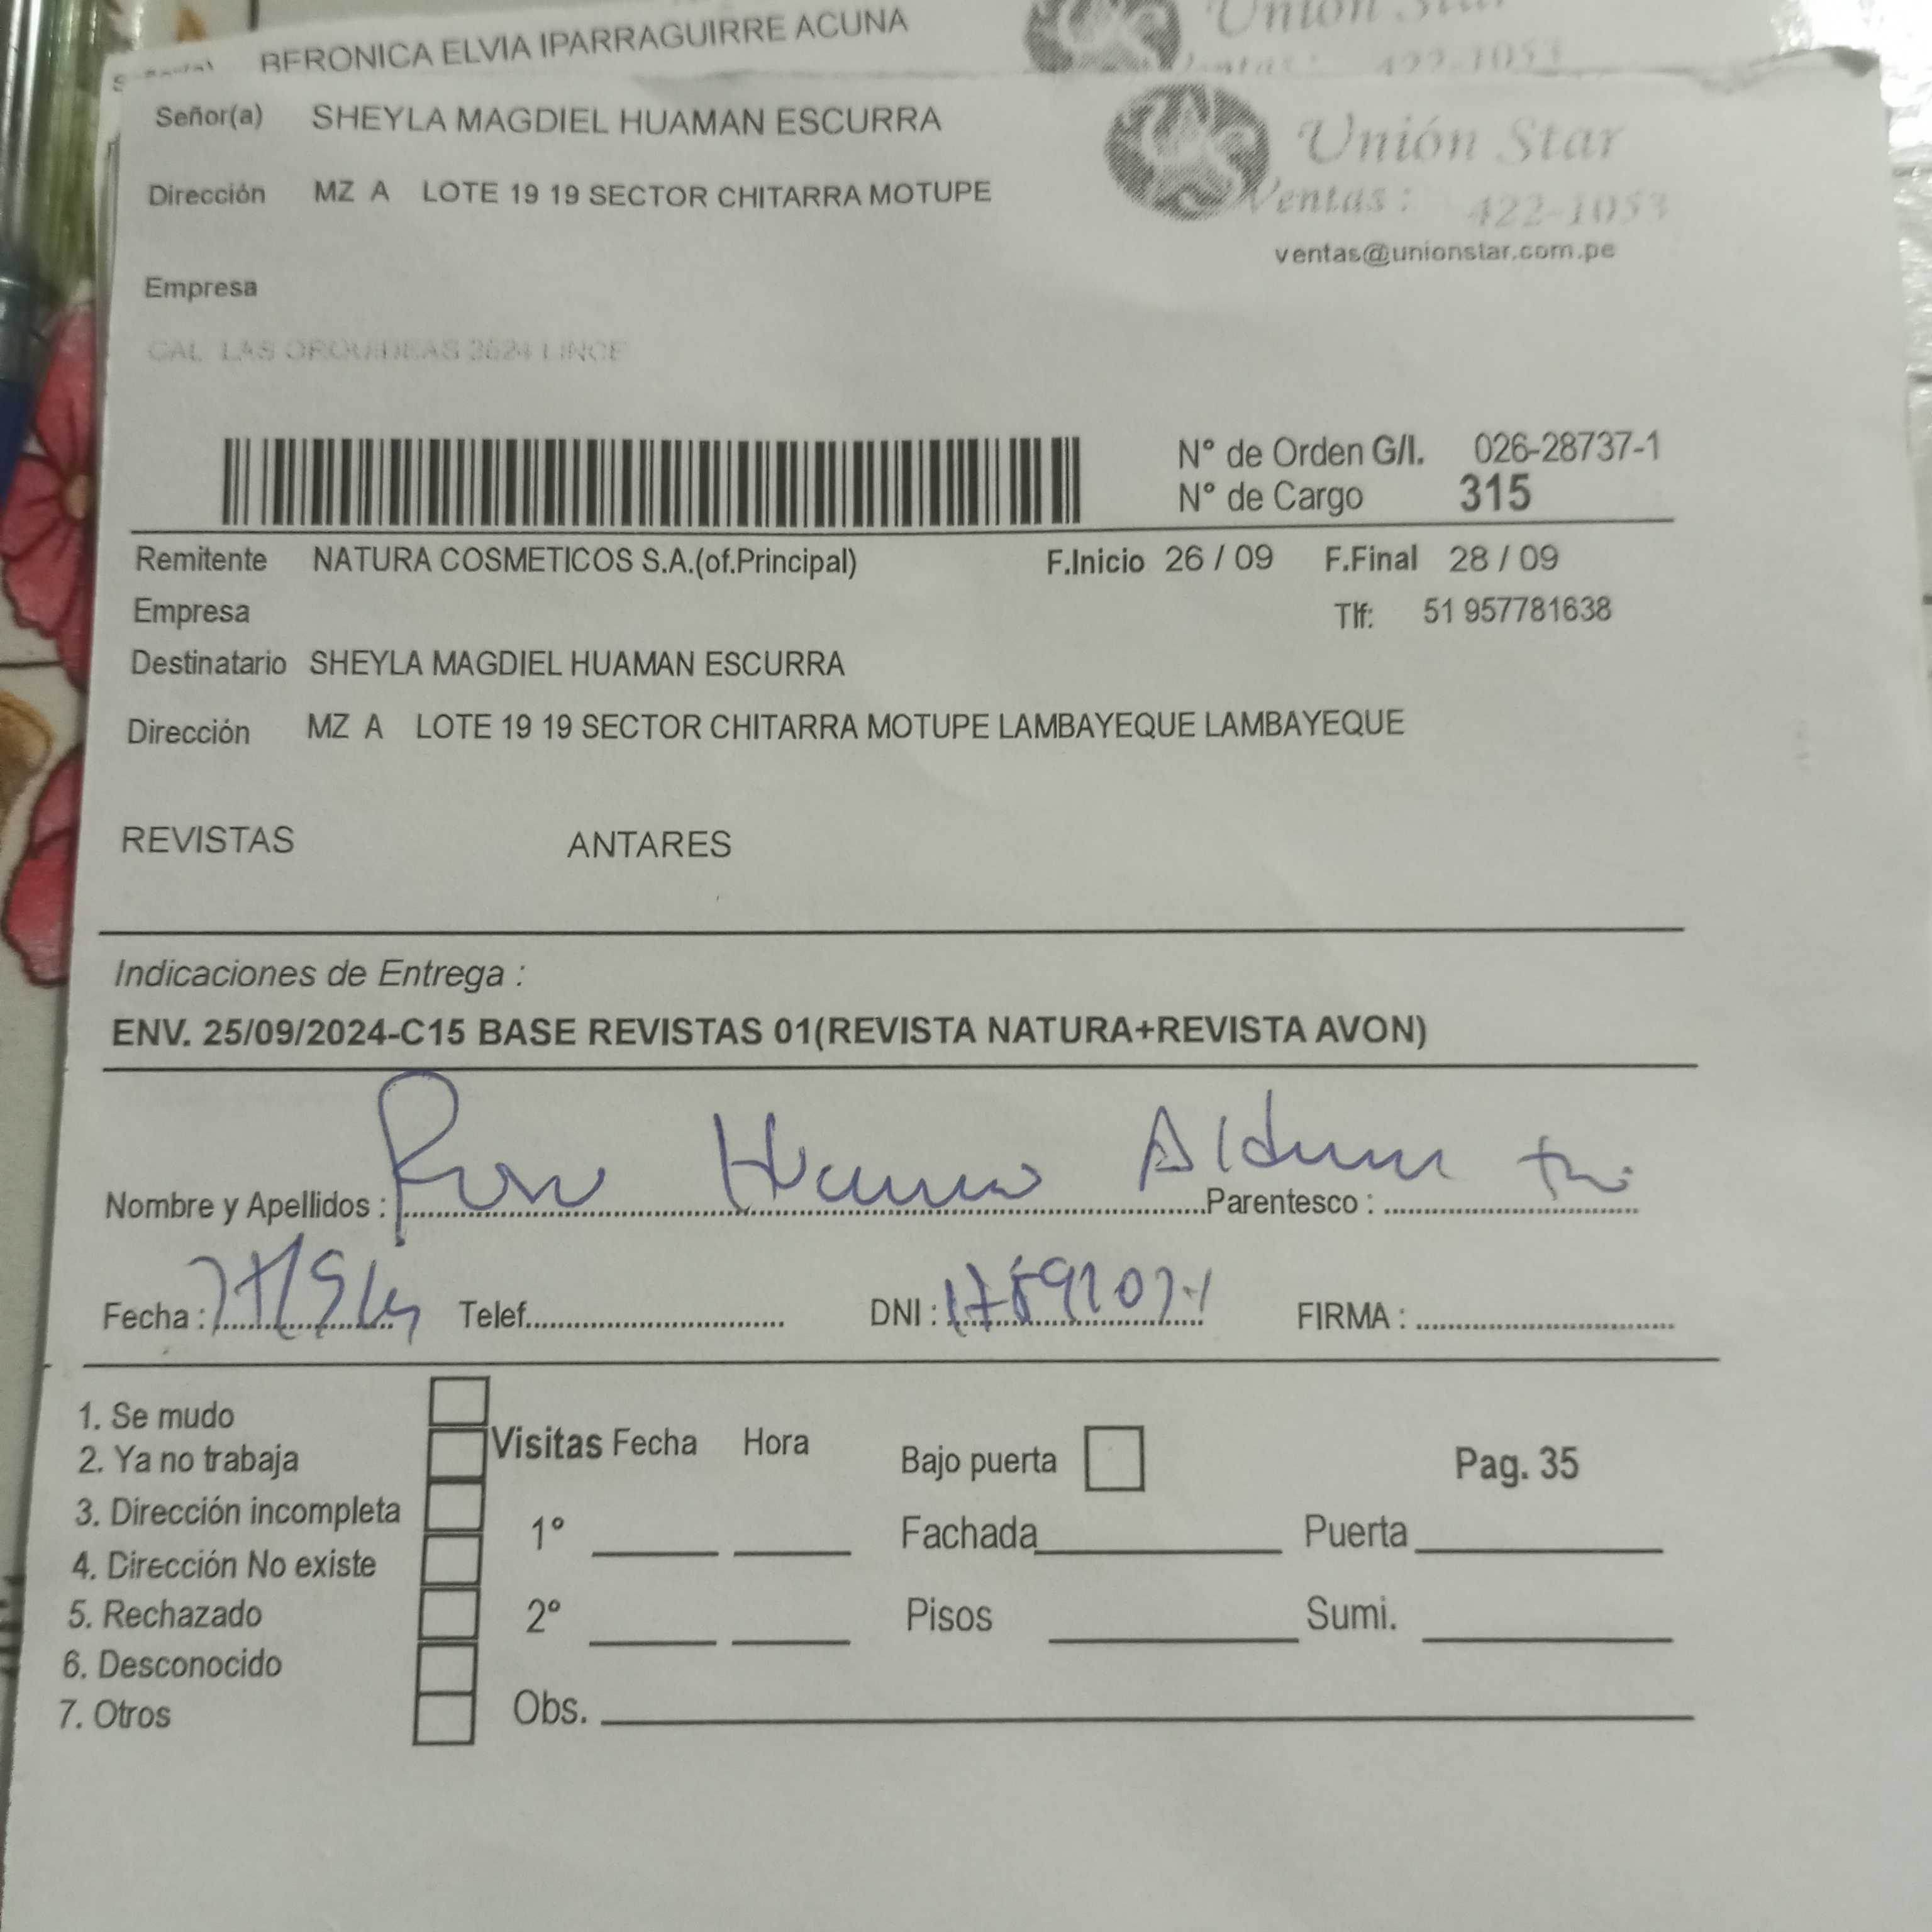 BERONICA ELVIA IPARRAGUIRRE ACUNA Unión Star
422-1053
Señor(a) SHEYLA MAGDIEL HUAMAN ESCURRA
Unión Star
Dirección MZ A LOTE 19 19 SECTOR CHITARRA MOTUPE
Ventas: 422-1053
ventas@unionstar.com.pe
Empresa
CAL LAS ORQUIDEAS 2624 LINCE
N° de Orden G/I. 026-28737-1
N° de Cargo 315
Remitente NATURA COSMETICOS S.A.(of.Principal) F.Inicio 26 / 09 F.Final 28 / 09
Empresa Tlf: 51 957781638
Destinatario SHEYLA MAGDIEL HUAMAN ESCURRA
Dirección MZ A LOTE 19 19 SECTOR CHITARRA MOTUPE LAMBAYEQUE LAMBAYEQUE
REVISTAS ANTARES
Indicaciones de Entrega :
ENV. 25/09/2024-C15 BASE REVISTAS 01(REVISTA NATURA+REVISTA AVON)
Nombre y Apellidos : Parentesco :
Fecha : Telef. DNI : FIRMA :
1. Se mudo
2. Ya no trabaja
3. Dirección incompleta
4. Dirección No existe
5. Rechazado
6. Desconocido
7. Otros
Visitas Fecha Hora Bajo puerta Pag. 35
1° Fachada Puerta
2° Pisos Sumi.
Obs.